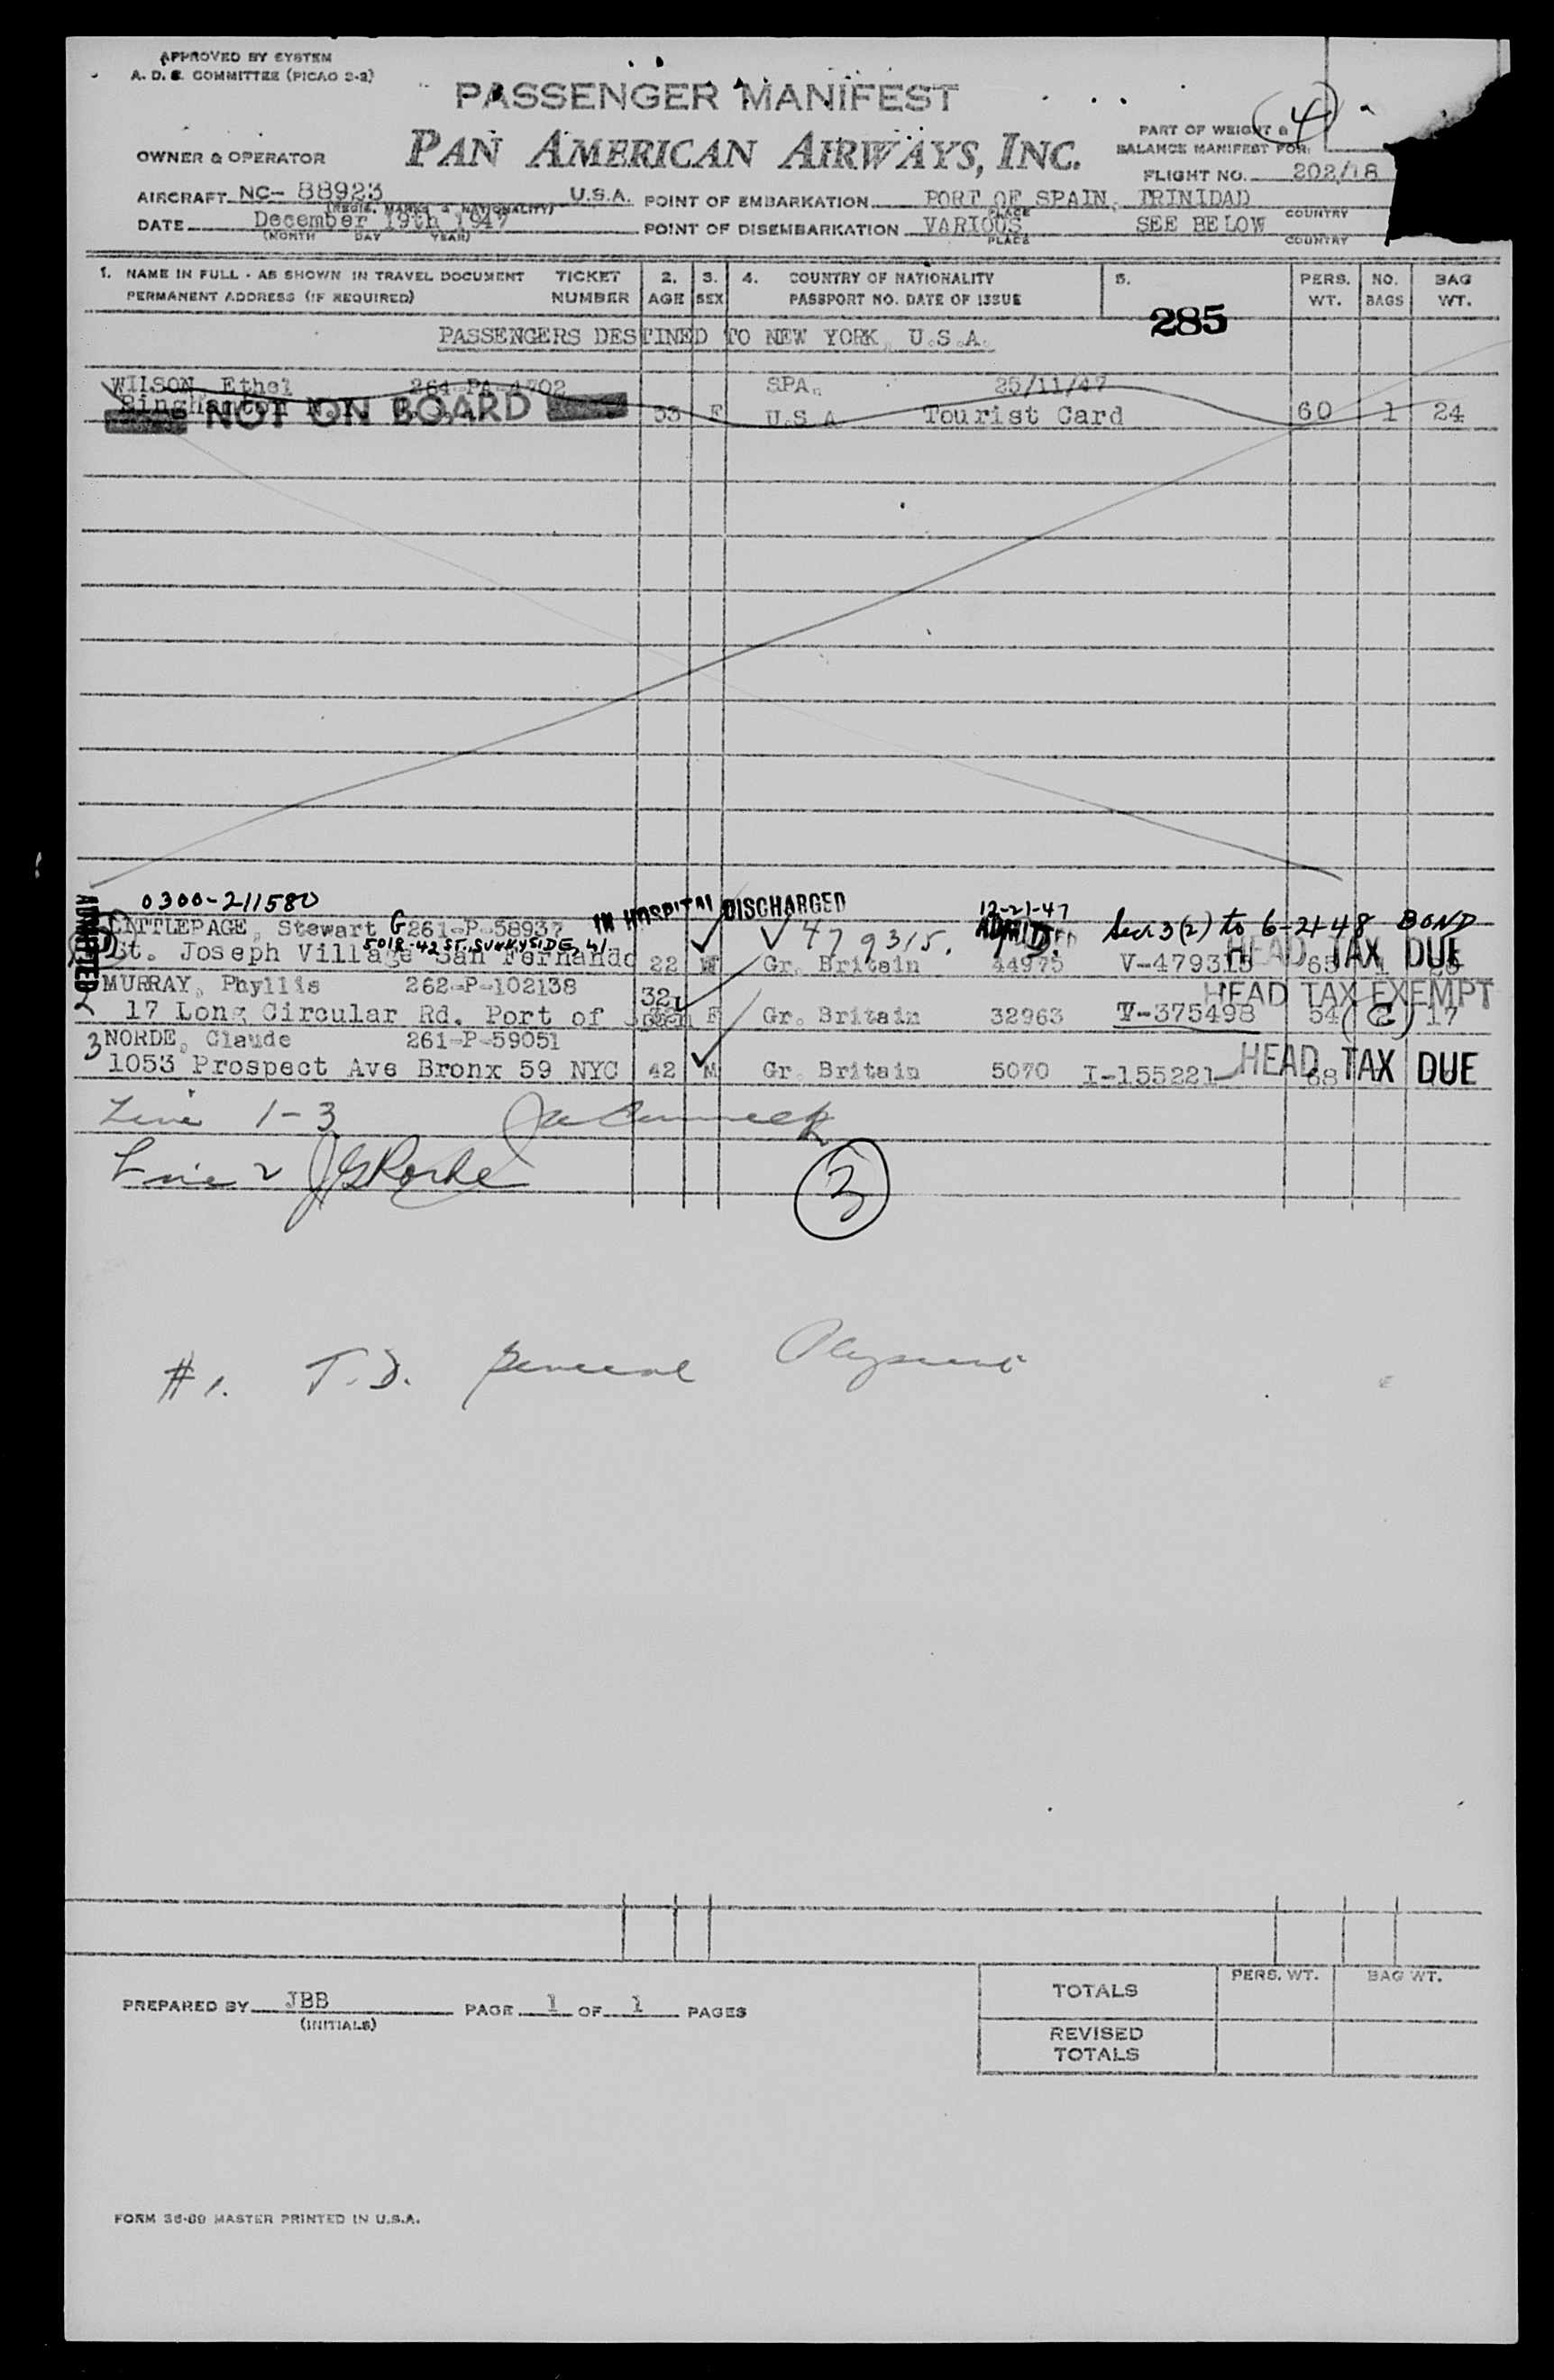 APPROVED BY SYSTEM
A. D. & COMMITTEE (PICAO 2-2)
PASSENGER MANIFEST
PAN AMERICAN AIRWAYS, INC.
(4)
PART OF WEIGHT &
BALANCE MANIFEST FOR:
OWNER & OPERATOR
FLIGHT NO. 202/18
AIRCRAFT NC- 88923 U.S.A. POINT OF EMBARKATION PORT OF SPAIN, TRINIDAD
(REGIS. MARKS & NATIONALITY) PLACE COUNTRY
DATE December 19th 1947 POINT OF DISEMBARKATION VARIOUS SEE BELOW
(MONTH DAY YEAR) PLACE COUNTRY
1. NAME IN FULL - AS SHOWN IN TRAVEL DOCUMENT TICKET 2. 3. 4. COUNTRY OF NATIONALITY 5. PERS. NO. BAG
PERMANENT ADDRESS (IF REQUIRED) NUMBER AGE SEX PASSPORT NO. DATE OF ISSUE WT. BAGS WT.
285
PASSENGERS DESTINED TO NEW YORK, U.S.A.
WILSON, Ethel 264-PA-4702 SPA. 25/11/47
Binghamton N.Y. 53 F U.S.A Tourist Card 60 1 24
NOT ON BOARD
0300-211580
IN HOSPITAL DISCHARGED 12-21-47
ADMITTED
LITTLEPAGE, Stewart G 261-P-58937 479315. ADMITTED Sec 3(2) to 6-21-48 BOND
5018-42 ST. SUNNYSIDE, LI
St. Joseph Village San Fernando 22 M Gr. Britain 44975 V-479315 65 1
HEAD TAX DUE
2 MURRAY, Phyllis 262-P-102138 32 HEAD TAX EXEMPT
17 Long Circular Rd. Port of Spain F Gr. Britain 32963 V-375498 54 17
3 NORDE, Claude 261-P-59051
1053 Prospect Ave Bronx 59 NYC 42 M Gr. Britain 5070 I-155221 68
HEAD TAX DUE
Line 1-3
Line 2 JG Rorke
3
#1. T.D. 
PREPARED BY JBB PAGE 1 OF 1 PAGES
(INITIALS)
PERS. WT. BAG WT.
TOTALS
REVISED
TOTALS
FORM 36-69 MASTER PRINTED IN U.S.A.